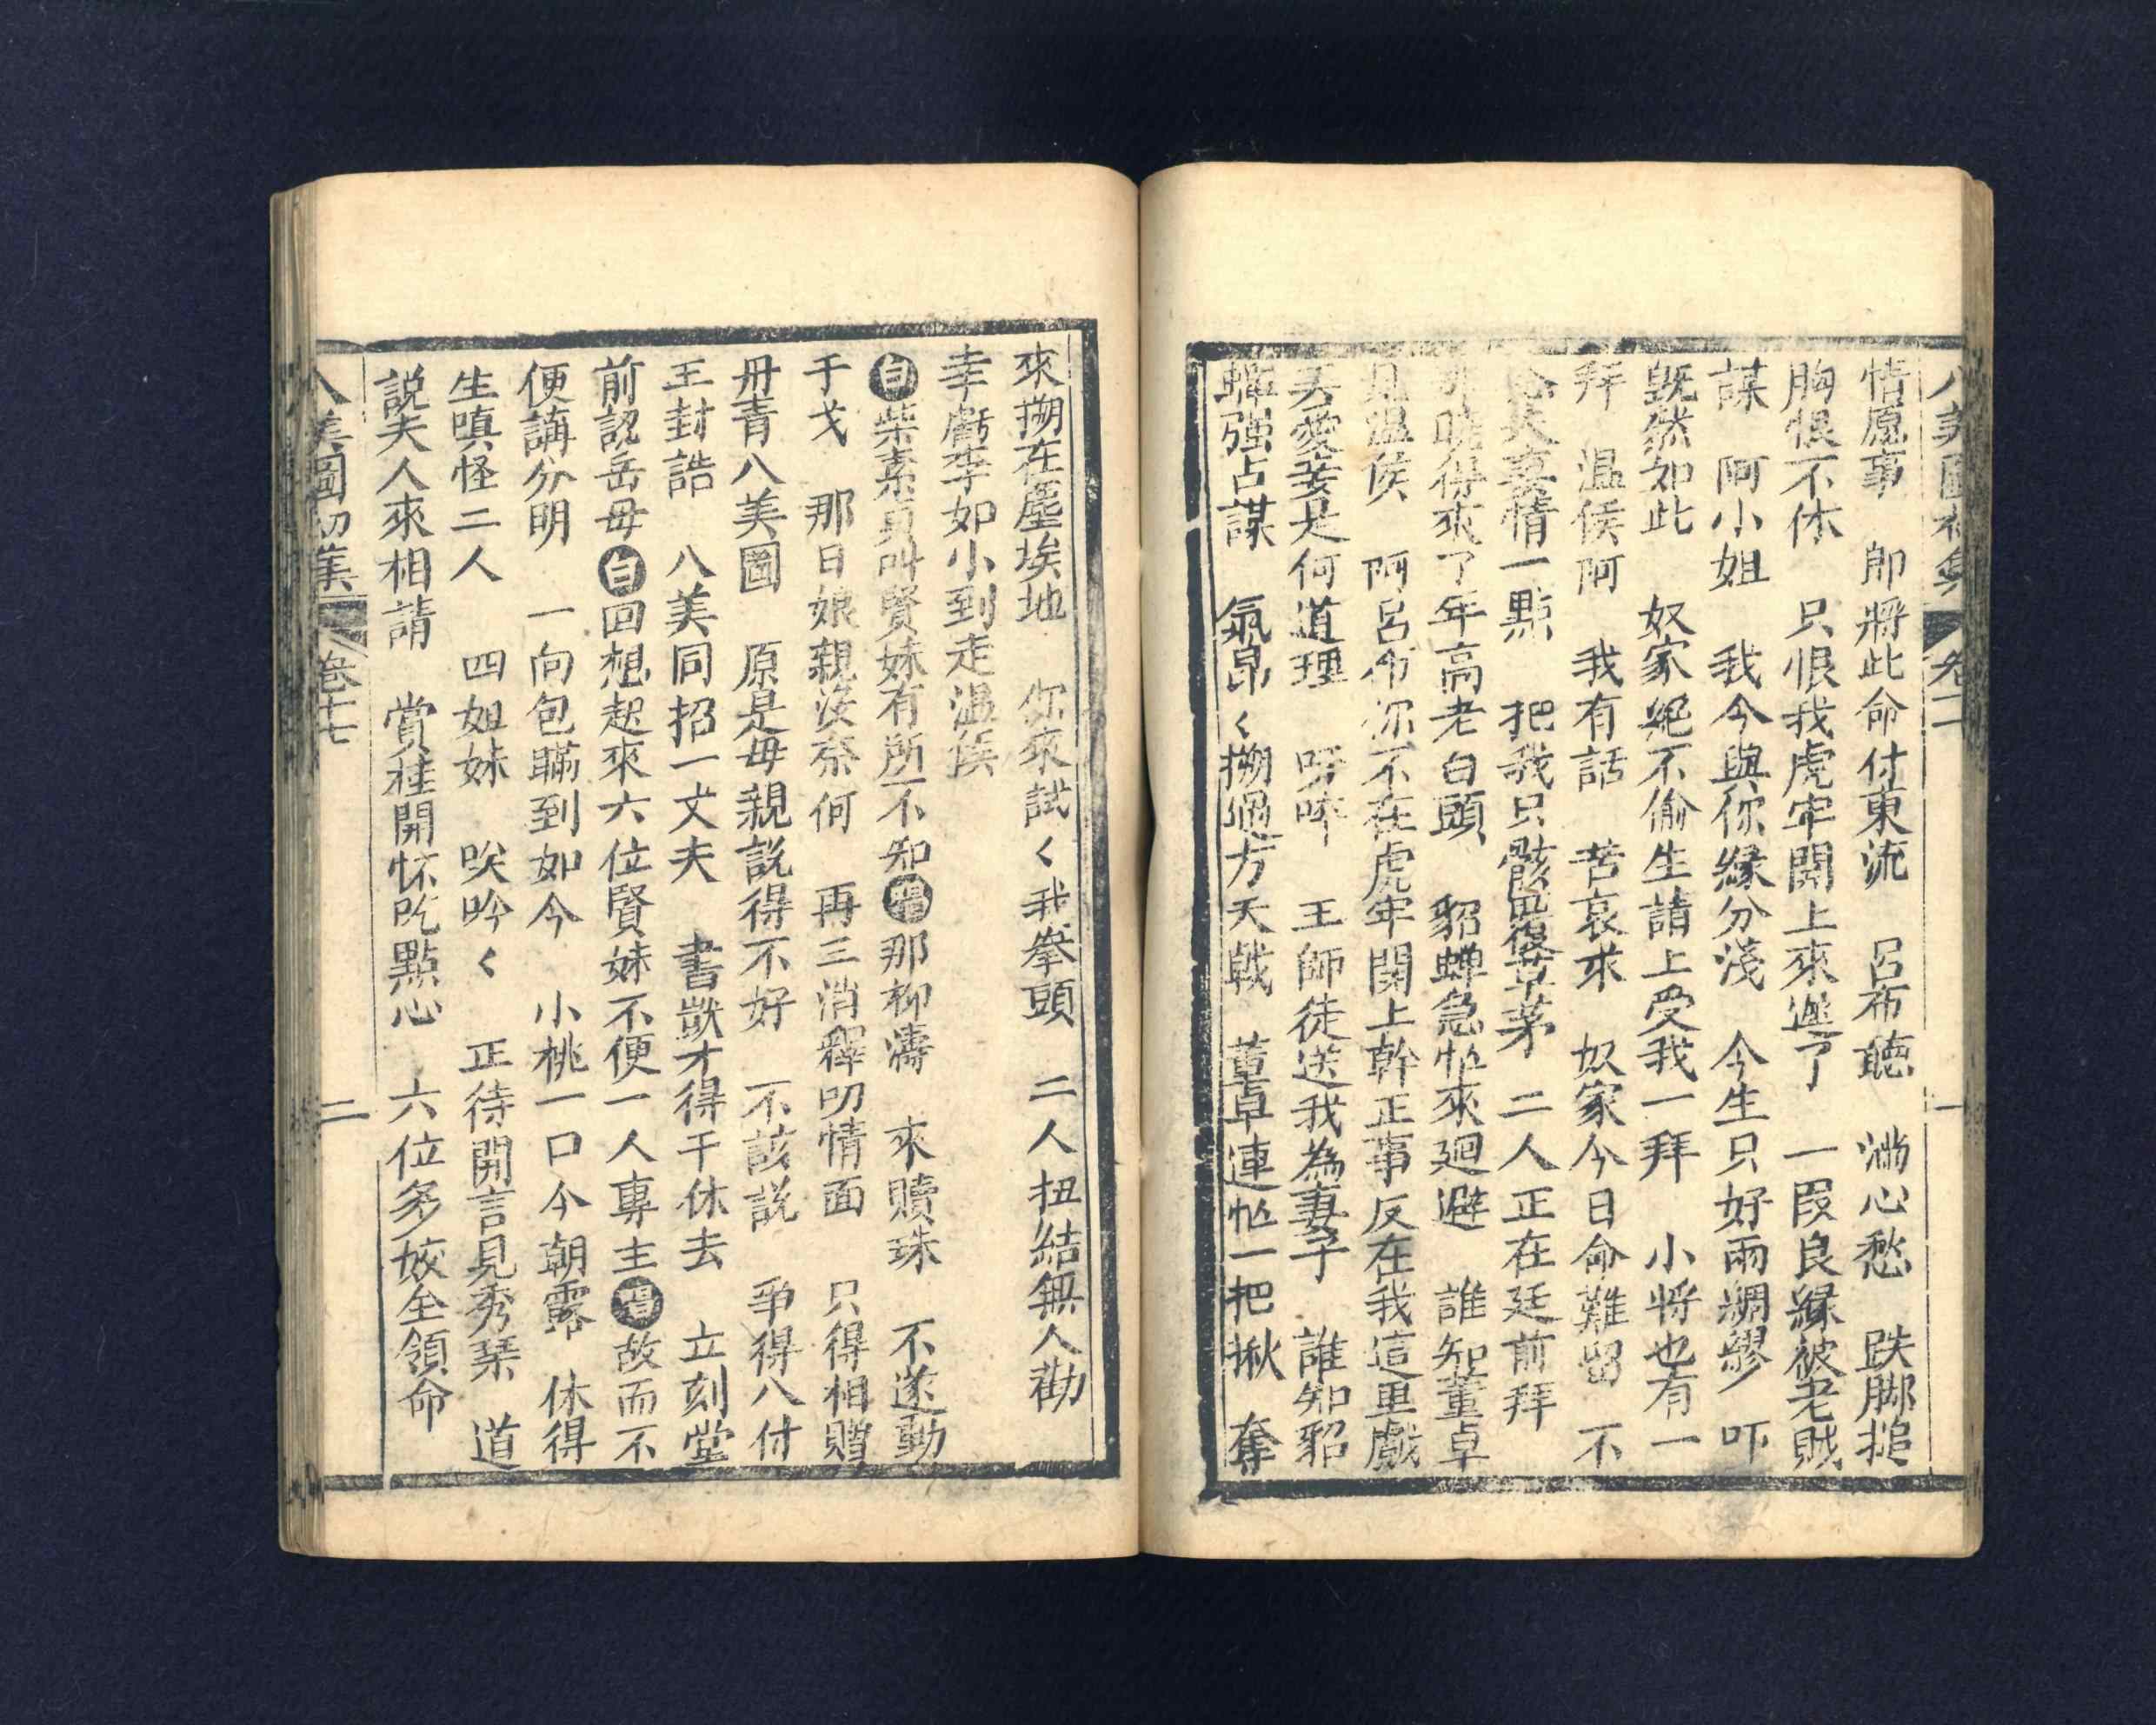 八美圖 卷二 一
情愿事 即將此命付東流 呂布聽 滿心愁 跌脚搥
胸恨不休 只恨我虎牢關上來遲了 一段良緣被老賊
謀 阿小姐 我今與你緣分淺 今生只好兩綢繆 吓
既然如此 奴家絕不偷生請上受我一拜 小將也有一
拜 温侯阿 我有話 苦哀求 奴家今日命難留 不
情一點 把我只骸 草茅 二人正在廷前拜
曉得來了年高老白頭 貂蟬急忙來廻避 誰知董卓
見温侯 阿呂布你不在虎牢関上幹正事反在我這里戲
吾愛妾是何道理 呀啐 王師徒送我為妻子 誰知貂
蟬强占謀 氣昂く搠過方天戟 董卓連忙一把揪 奪
來搠在塵埃地 你來試く我拳頭 二人扭結無人勸
幸虧李如小到走温侯
白柴素貞叫賢妹有所不知唱那柳濤 來贖珠 不遂動
干戈 那日娘親没奈何 再三消釋叨情面 只得相贈
丹青八美圖 原是毋親説得不好 不該説 爭得八付
王封誥 八美同招一丈夫 書獃才得干休去 立刻堂
前認岳毋白回想起來六位賢妹不便一人專主唱故而不
便講分明 一向包瞞到如今 小桃一口今朝露 休得
生嗔怪二人 四姐妹 唉吟く 正待開言見秀琹 道
説夫人來相請 賞桂開怀吃點心 六位多姣全領命
八美圖初集 卷十七 二